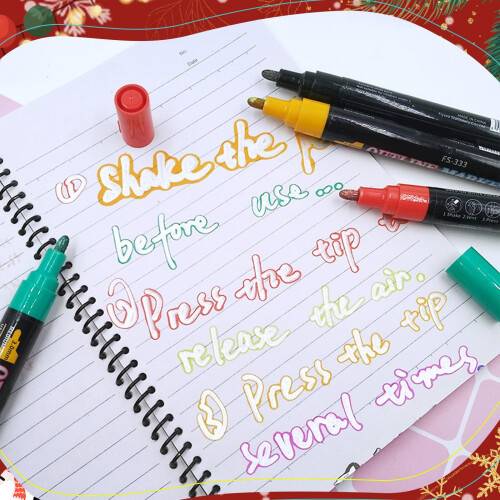 No:
Date
① Shake the p
before use...
② Press the tip t
release the air.
③ Press the tip
several times.
OUTLINE MARKER
FS-333
1.Shake 2.Vent 3.Press
2.0mm